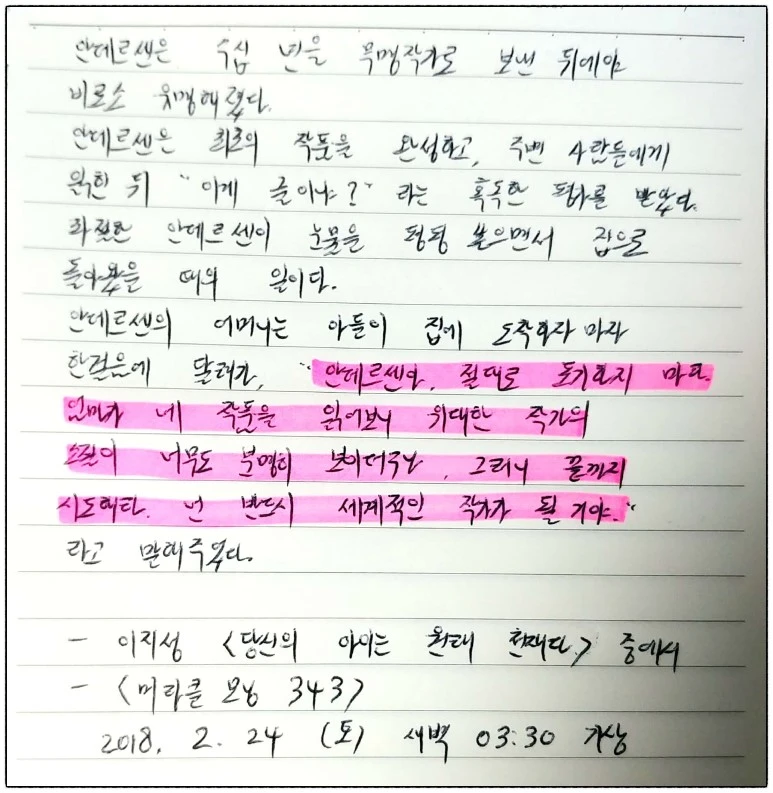 안데르센은 수십 년을 무명작가로 보낸 뒤에야
비로소 유명해졌다.
안데르센은 최초의 작품을 완성하고, 주변 사람들에게
읽힌 뒤 "이게 글이냐?" 라는 혹독한 평가를 받았다.
좌절한 안데르센이 눈물을 펑펑 쏟으면서 집으로
돌아왔을 때의 일이다.
안데르센의 어머니는 아들이 집에 도착하자 마자
한걸음에 달려가, "안데르센아, 절대로 포기하지 마라.
엄마가 네 작품을 읽어보니 위대한 작가의
소질이 너무도 분명히 보이더구나. 그러니 끝까지
시도해라. 넌 반드시 세계적인 작가가 될 거야."
라고 말해주었다.
- 이지성 <당신의 아이는 원래 천재다.> 중에서
- <미라클 모닝 343>
2018. 2. 24 (토) 새벽 03:30 기상